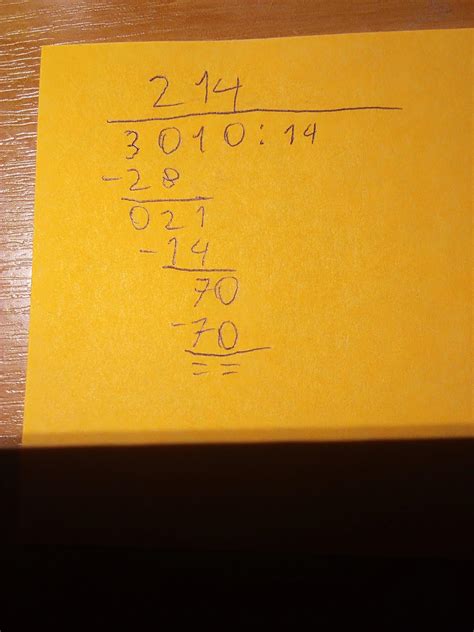 214
3010:14
-28
021
-14
70
-70
==